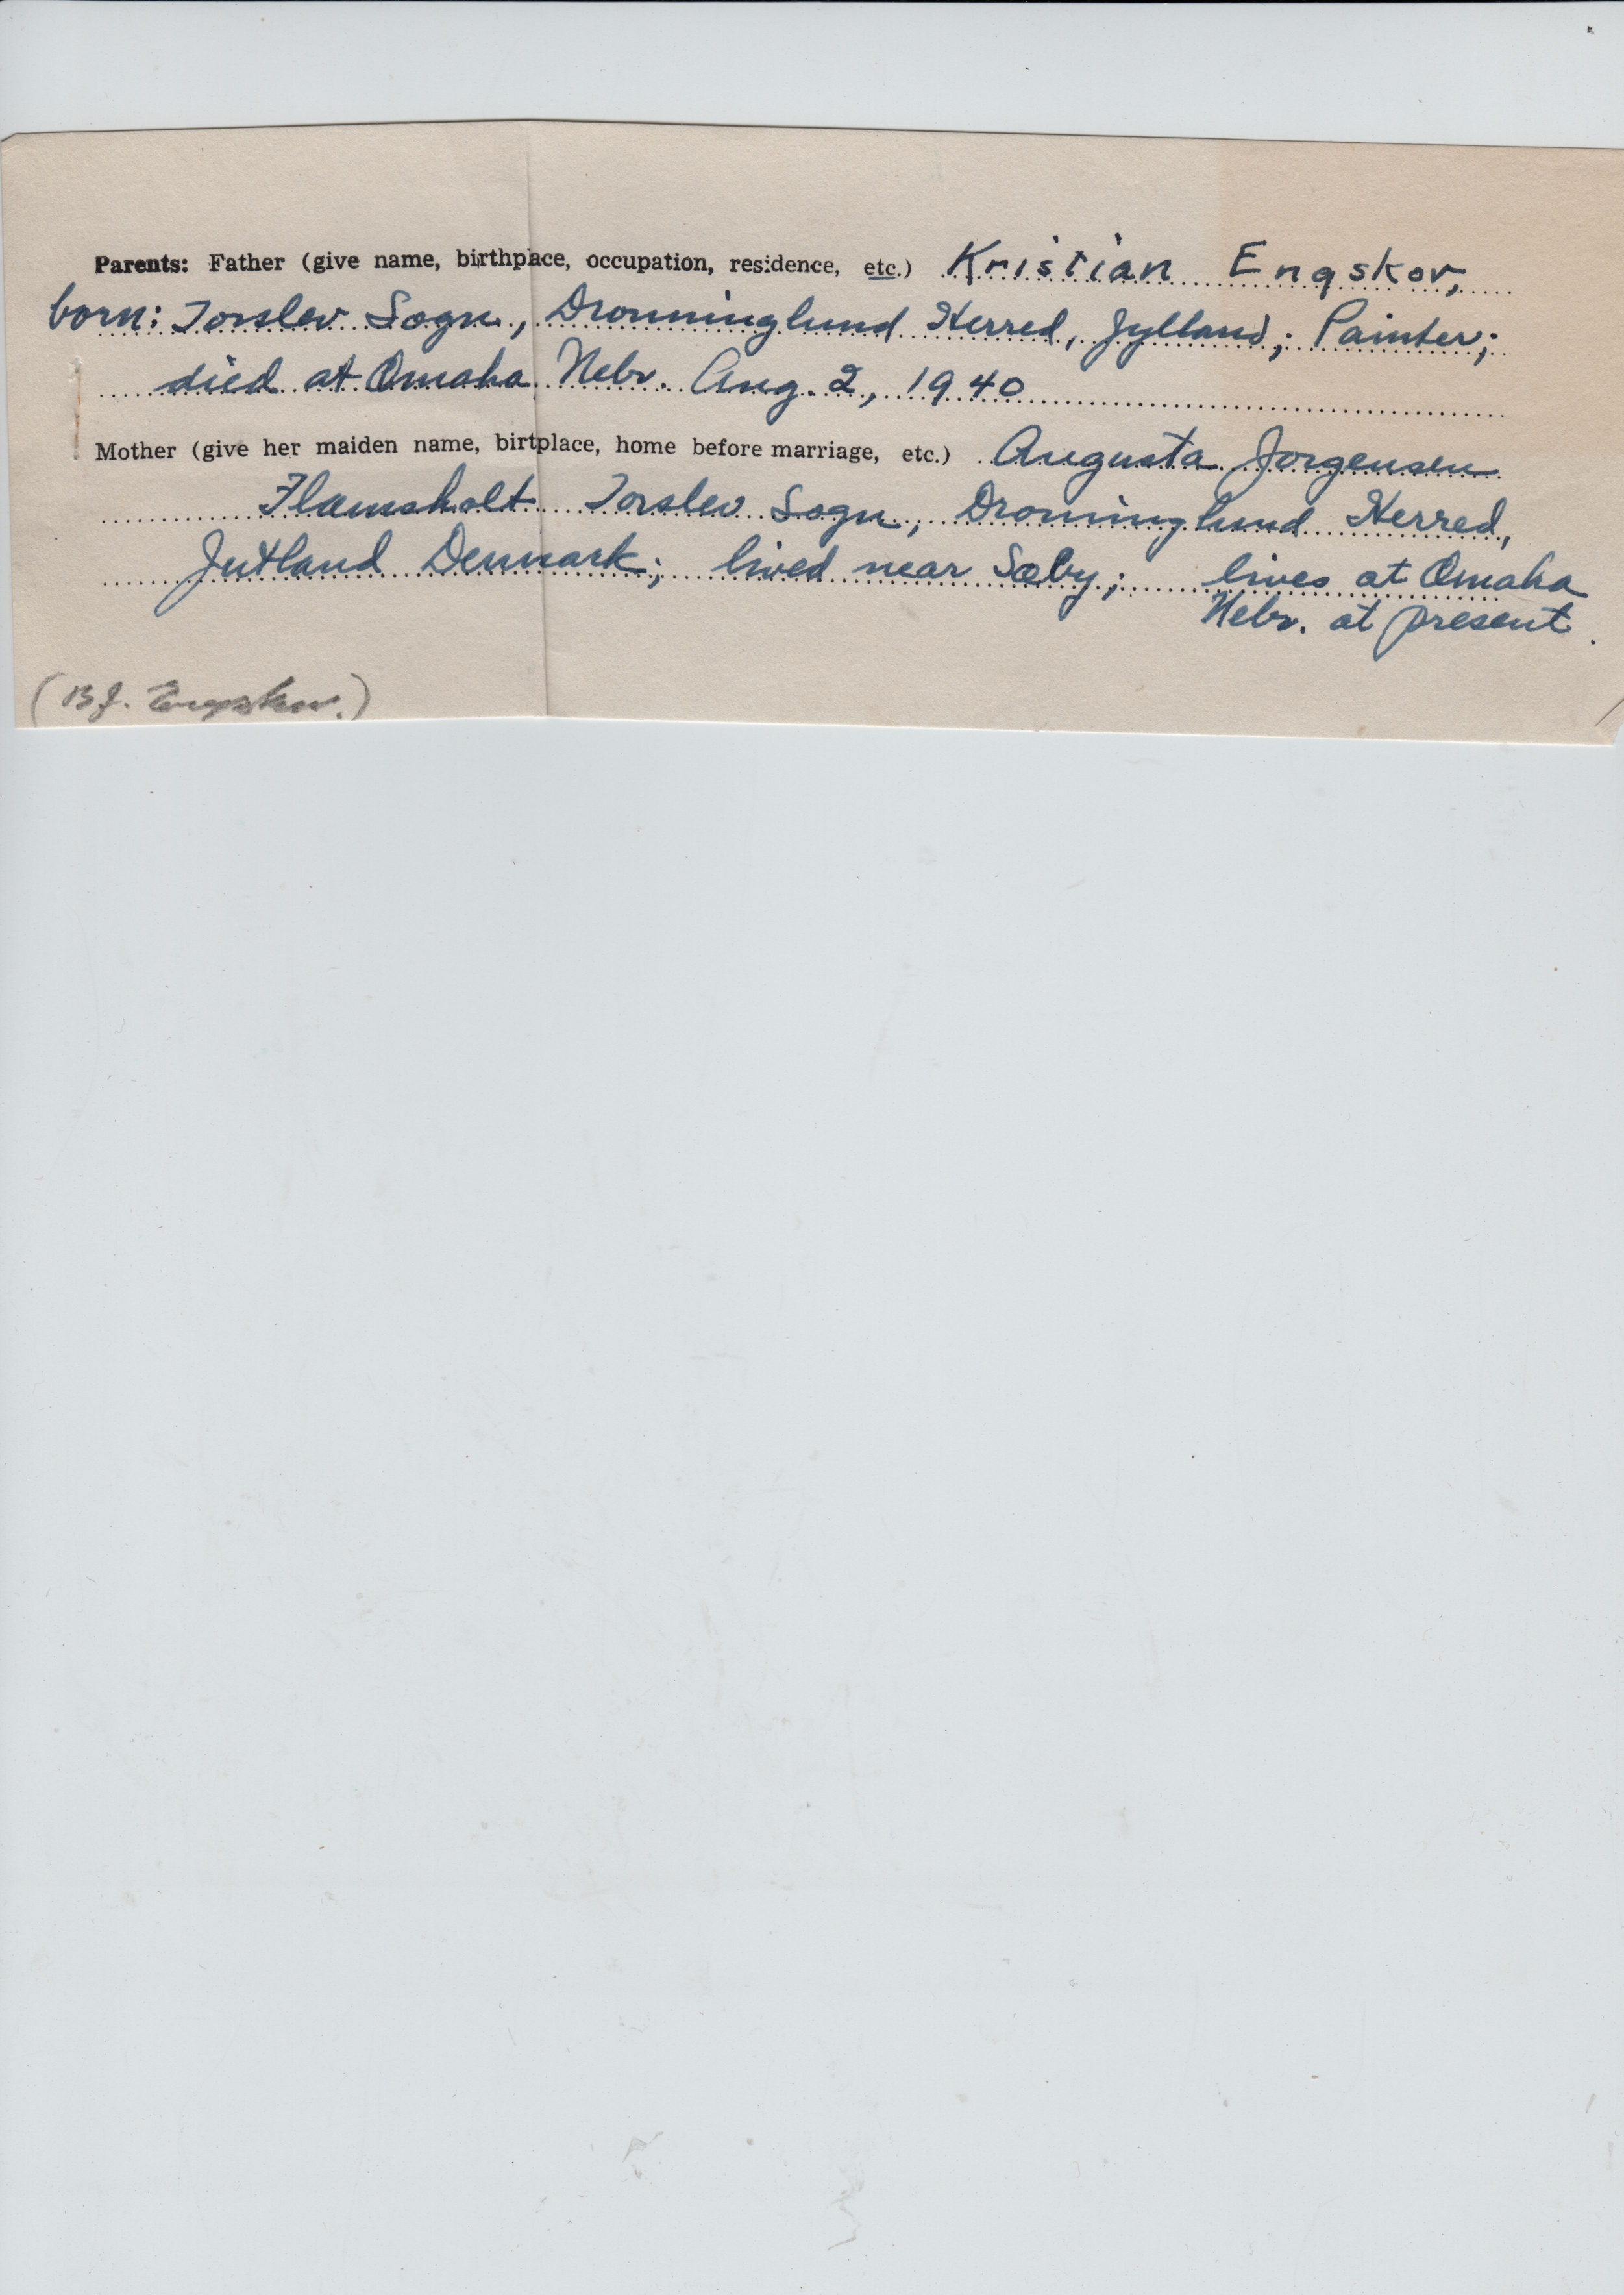 Parents: Father (give name, birthplace, occupation, residence, etc.) Kristian Engskov,
born: Torslev Sogn, Dronninglund Herred, Jylland; Painter;
died at Omaha, Nebr. Aug. 2, 1940
Mother (give her maiden name, birtplace, home before marriage, etc.) Augusta Jorgensen
Flamsholt Torslev Sogn, Droninglund Herred,
Jutland Denmark; lived near Sæby; lives at Omaha
Nebr. at present.
(B.J. Engskov.)